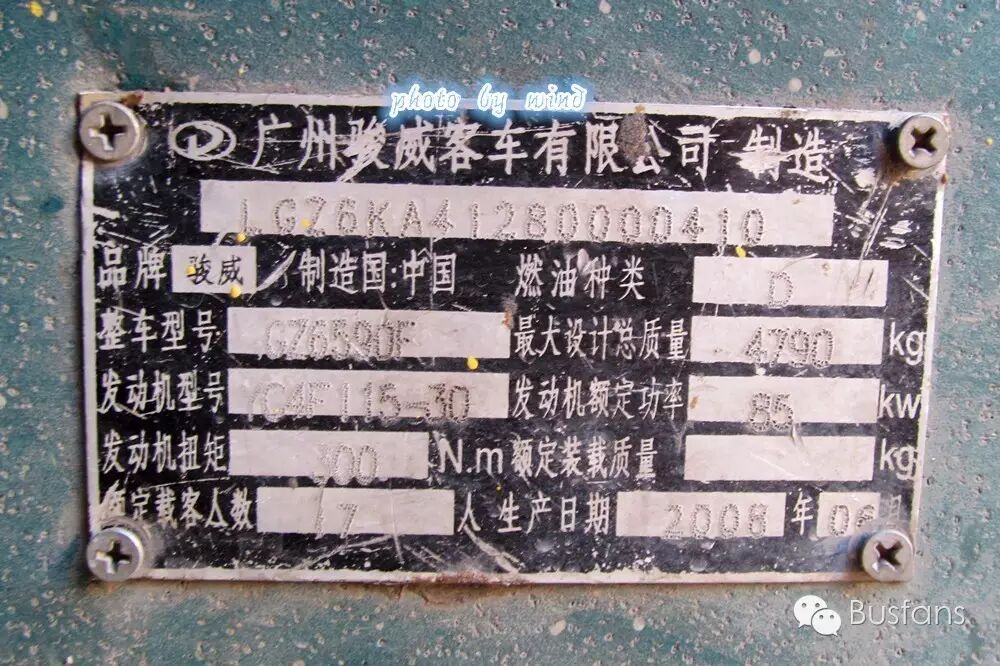 photo by wind
广州骏威客车有限公司 制造
LGZ6KA41280000410
品牌 骏威 制造国:中国 燃油种类 D
整车型号 GZ6590F 最大设计总质量 4790 kg
发动机型号 YC4F115-30 发动机额定功率 85 kw
发动机扭矩 300 N.m 额定装载质量 kg
额定载客人数 17 人 生产日期 2008 年 06 月
Busfans